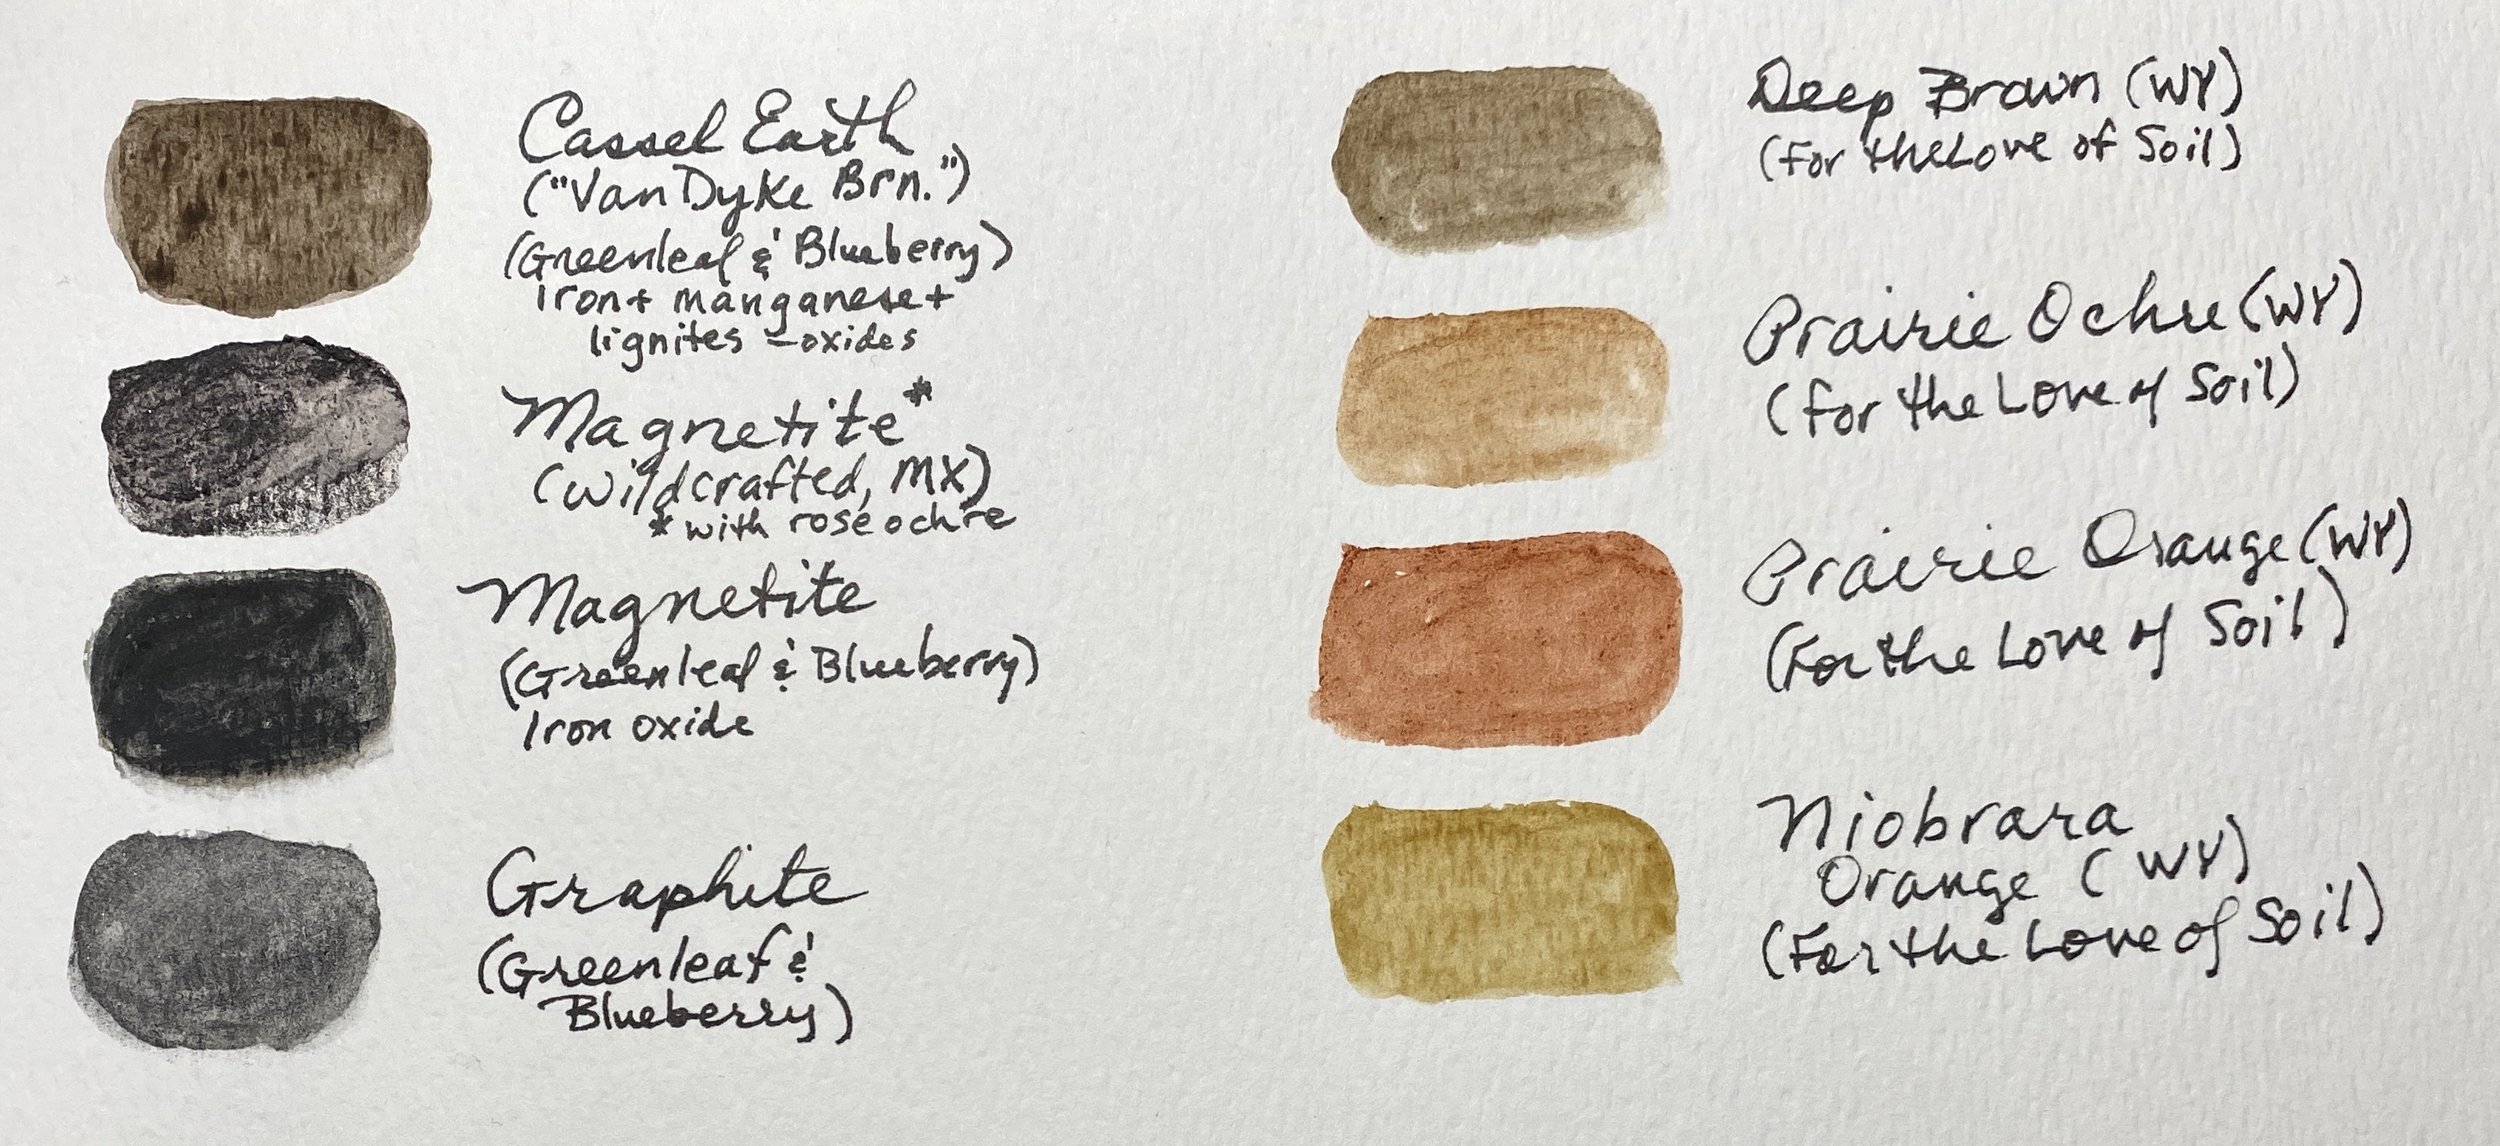 Cassel Earth
("Van Dyke Brn.")
(Greenleaf & Blueberry)
Iron + manganese +
lignites - oxides
Magnetite*
(Wildcrafted, MX)
*with rose ochre
Magnetite
(Greenleaf & Blueberry)
Iron oxide
Graphite
(Greenleaf &
Blueberry)
Deep Brown (WY)
(For the Love of Soil)
Prairie Ochre (WY)
(For the Love of Soil)
Prairie Orange (WY)
(For the Love of Soil)
Niobrara
Orange (WY)
(For the Love of Soil)